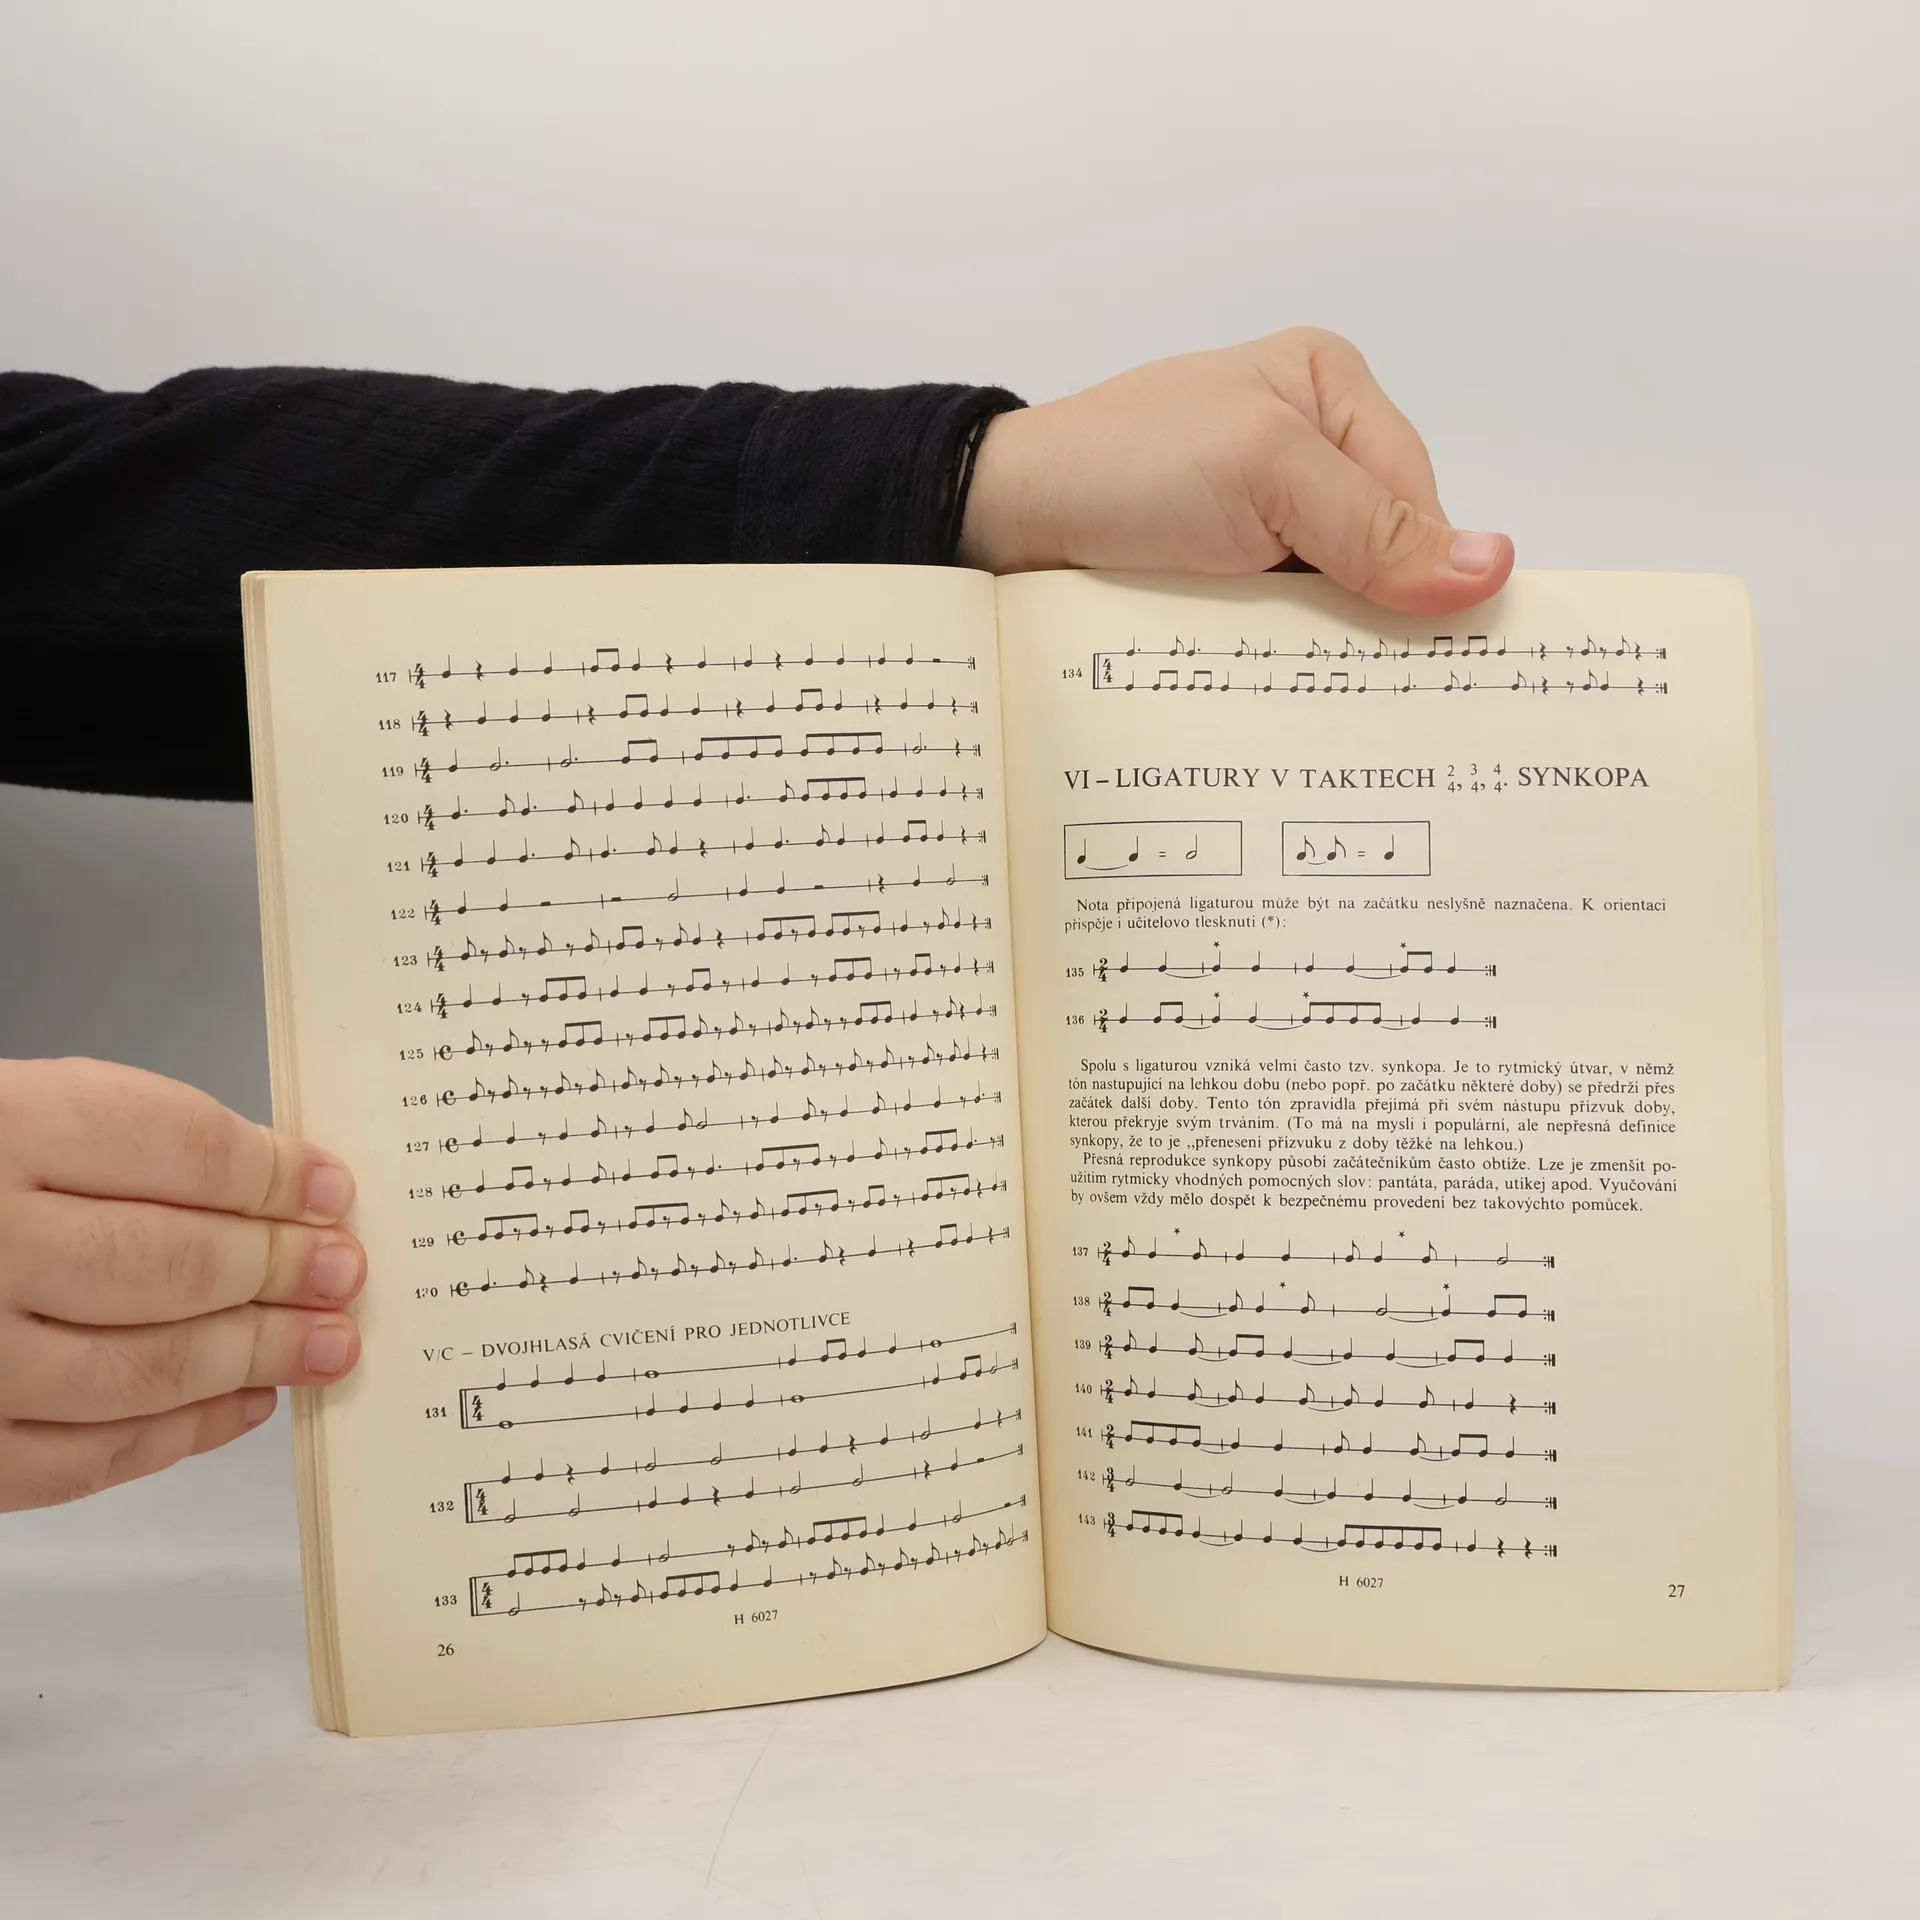 117 4/4
118 4/4
119 4/4
120 4/4
121 4/4
122 4/4
123 4/4
124 4/4
125
126
127
128
129
130
V/C – DVOJHLASÁ CVIČENÍ PRO JEDNOTLIVCE
131 4/4
132 4/4
133 4/4
H 6027
26
134 4/4
VI – LIGATURY V TAKTECH 2/4, 3/4, 4/4. SYNKOPA
=
=
Nota připojená ligaturou může být na začátku neslyšně naznačena. K orientaci
přispěje i učitelovo tlesknutí (*):
* *
135 2/4
* *
136 2/4
Spolu s ligaturou vzniká velmi často tzv. synkopa. Je to rytmický útvar, v němž
tón nastupující na lehkou dobu (nebo popř. po začátku některé doby) se předrží přes
začátek další doby. Tento tón zpravidla přejímá při svém nástupu přízvuk doby,
kterou překryje svým trváním. (To má na mysli i populární, ale nepřesná definice
synkopy, že to je ,,přenesení přízvuku z doby těžké na lehkou.)
Přesná reprodukce synkopy působí začátečníkům často obtíže. Lze je zmenšit po-
užitím rytmicky vhodných pomocných slov: pantáta, paráda, utíkej apod. Vyučování
by ovšem vždy mělo dospět k bezpečnému provedení bez takovýchto pomůcek.
* *
137 2/4
* *
138 2/4
139 2/4
140 2/4
141 2/4
142 3/4
143 3/4
H 6027
27